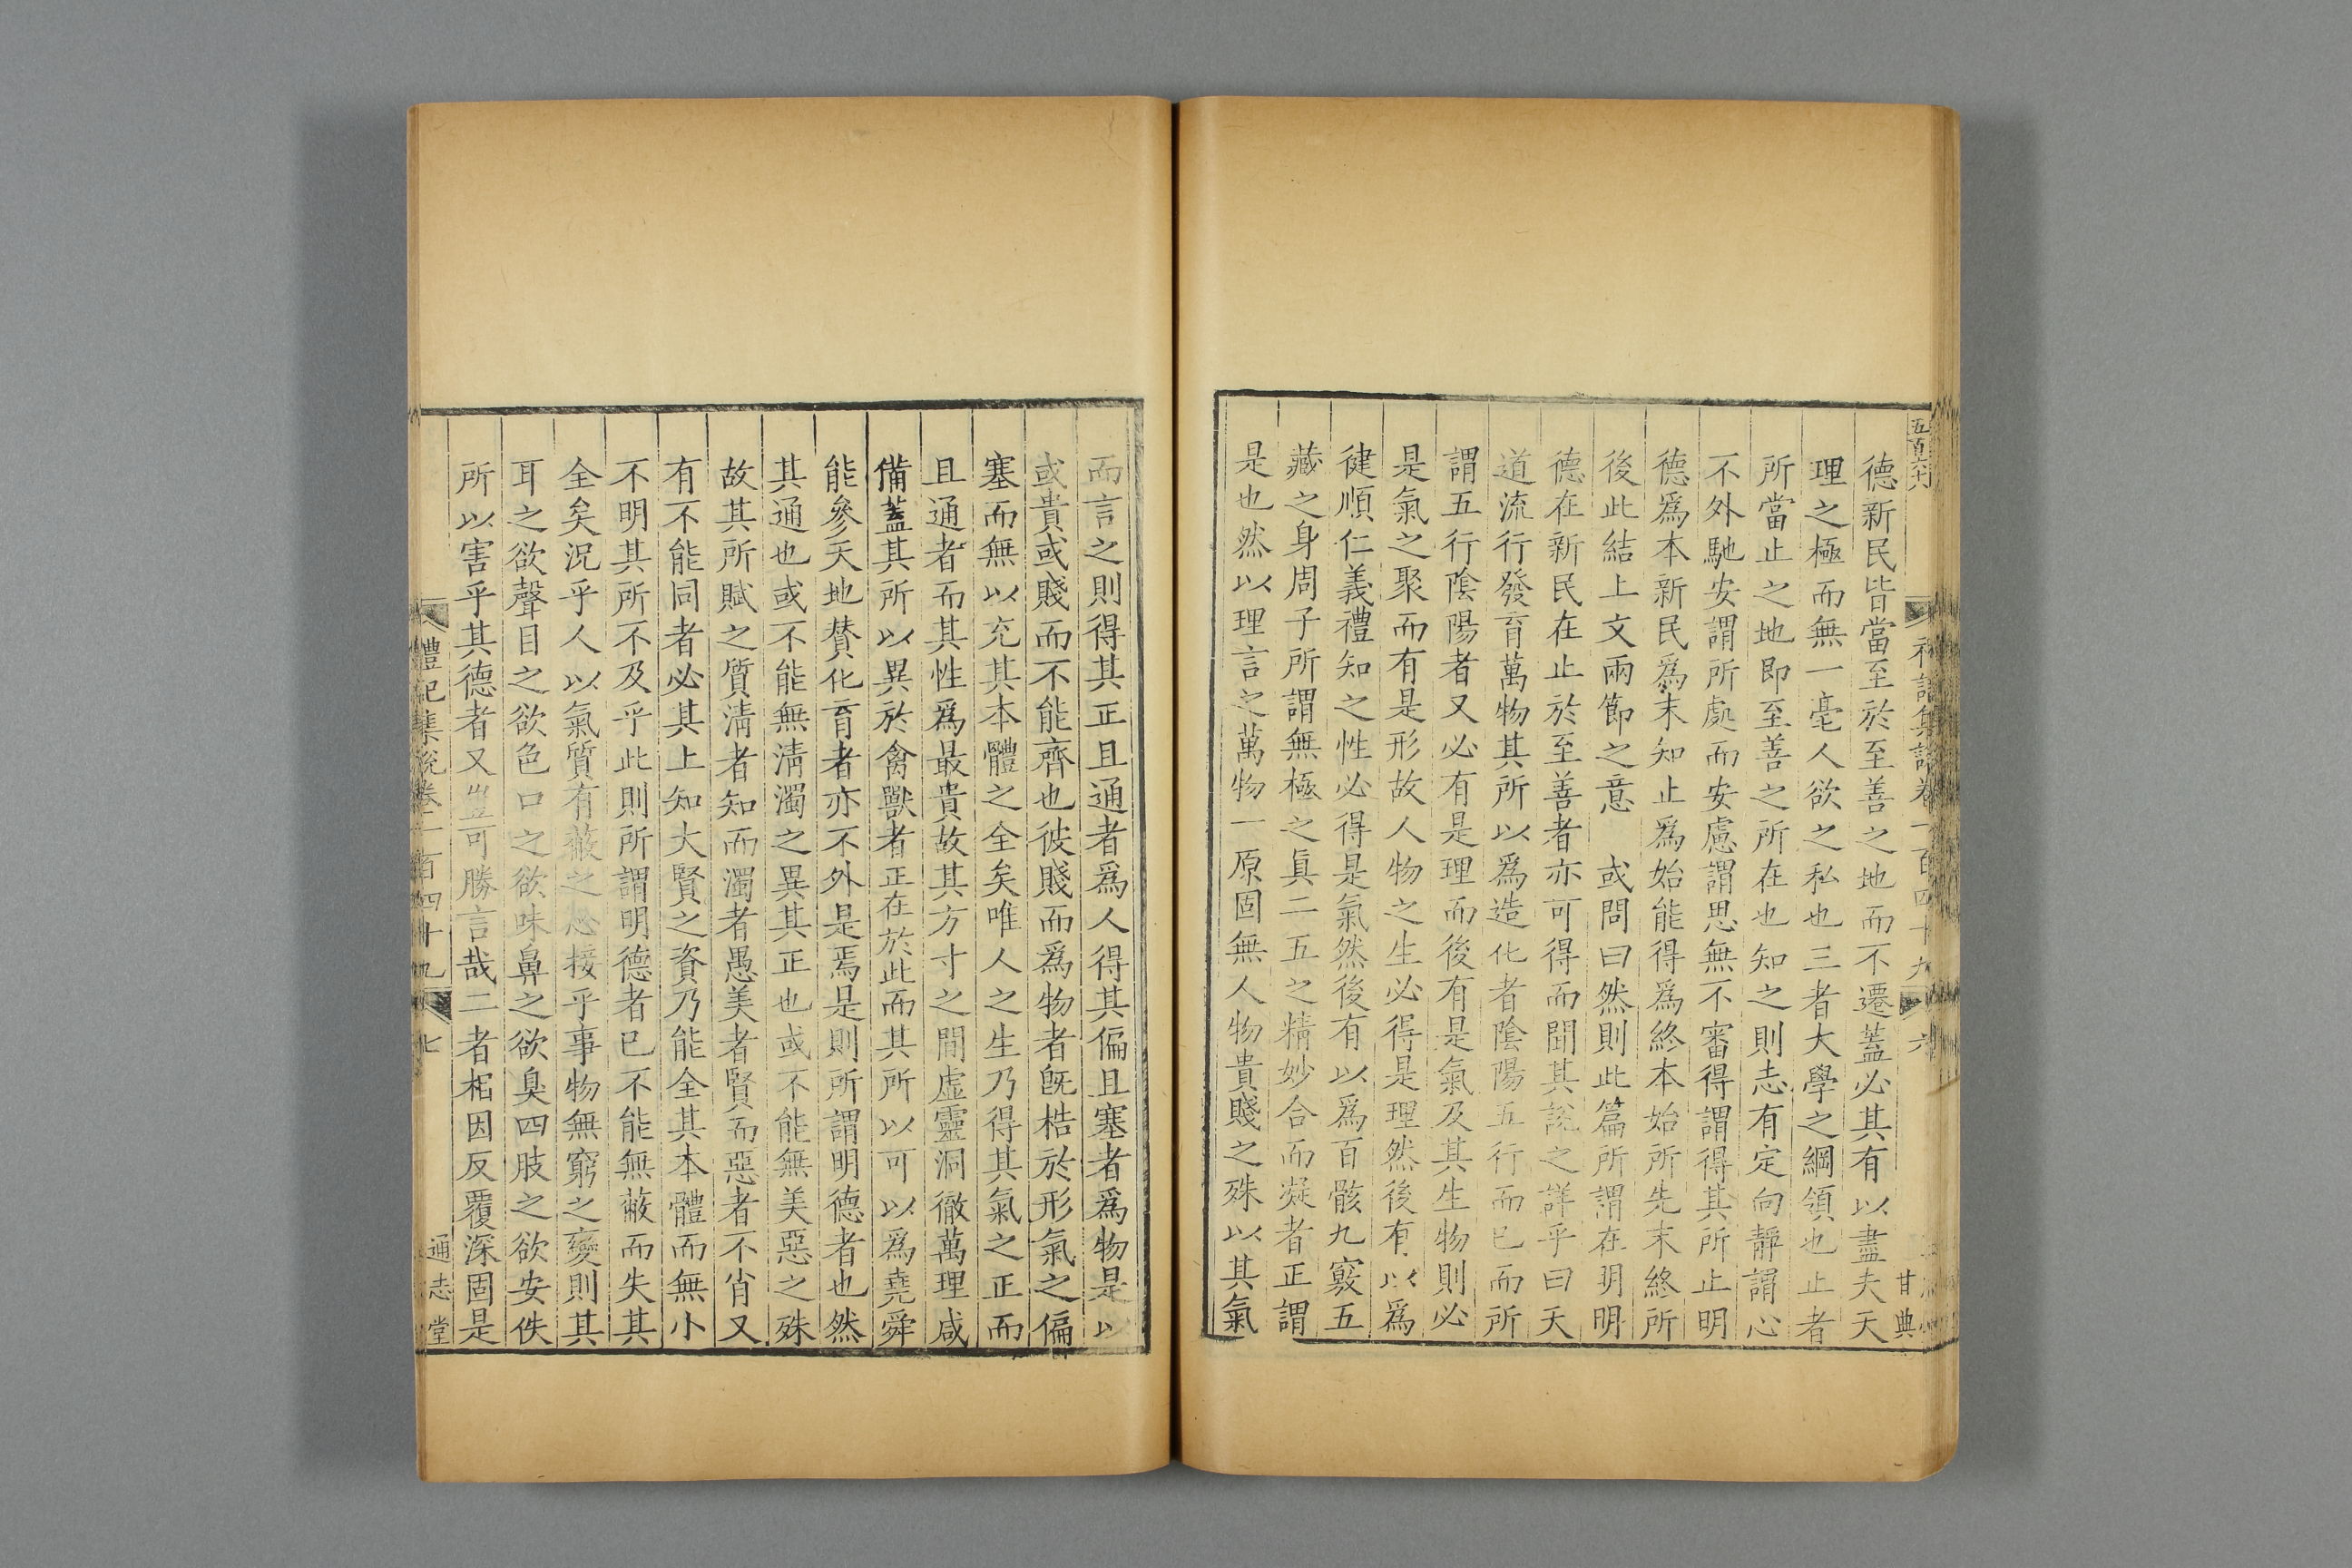 五百六十八
禮記集說卷一百四十九 六
甘典
德新民皆當至於至善之地而不遷蓋必其有以盡夫天
理之極而無一毫人欲之私也三者大學之綱領也止者
所當止之地即至善之所在也知之則志有定向靜謂心
不外馳安謂所處而安慮謂思無不審得謂得其所止明
德爲本新民爲末知止爲始能得爲終本始所先末終所
後此結上文兩節之意 或問曰然則此篇所謂在明明
德在新民在止於至善者亦可得而聞其說之詳乎曰天
道流行發育萬物其所以爲造化者陰陽五行而已而所
謂五行陰陽者又必有是理而後有是氣及其生物則必
是氣之聚而有是形故人物之生必得是理然後有以爲
健順仁義禮知之性必得是氣然後有以爲百骸九竅五
藏之身周子所謂無極之眞二五之精妙合而凝者正謂
是也然以理言之萬物一原固無人物貴賤之殊以其氣
而言之則得其正且通者爲人得其偏且塞者爲物是以
或貴或賤而不能齊也彼賤而爲物者旣梏於形氣之偏
塞而無以充其本體之全矣唯人之生乃得其氣之正而
且通者而其性爲最貴故其方寸之間虛靈洞徹萬理咸
備蓋其所以異於禽獸者正在於此而其所以可以爲堯舜
能參天地贊化育者亦不外是焉是則所謂明德者也然
其通也或不能無淸濁之異其正也或不能無美惡之殊
故其所賦之質淸者知而濁者愚美者賢而惡者不肖又
有不能同者必其上知大賢之資乃能全其本體而無小
不明其所不及乎此則所謂明德者已不能無蔽而失其
全矣況乎人以氣質有蔽之心接乎事物無窮之變則其
耳之欲聲目之欲色口之欲味鼻之欲臭四肢之欲安佚
所以害乎其德者又豈可勝言哉二者相因反覆深固是
禮記集說卷一百四十九 七
通志堂